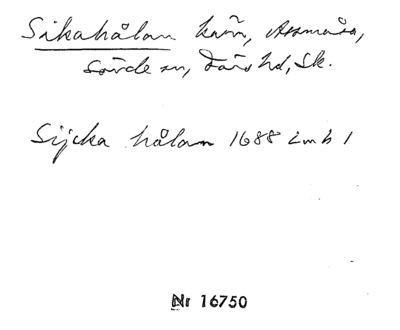 Sikahålan kärr, Assmåsa,
Sövde sn, Färs hd, Sk.
Sijcka hålan 1688 Lmb 1
Nr 16750